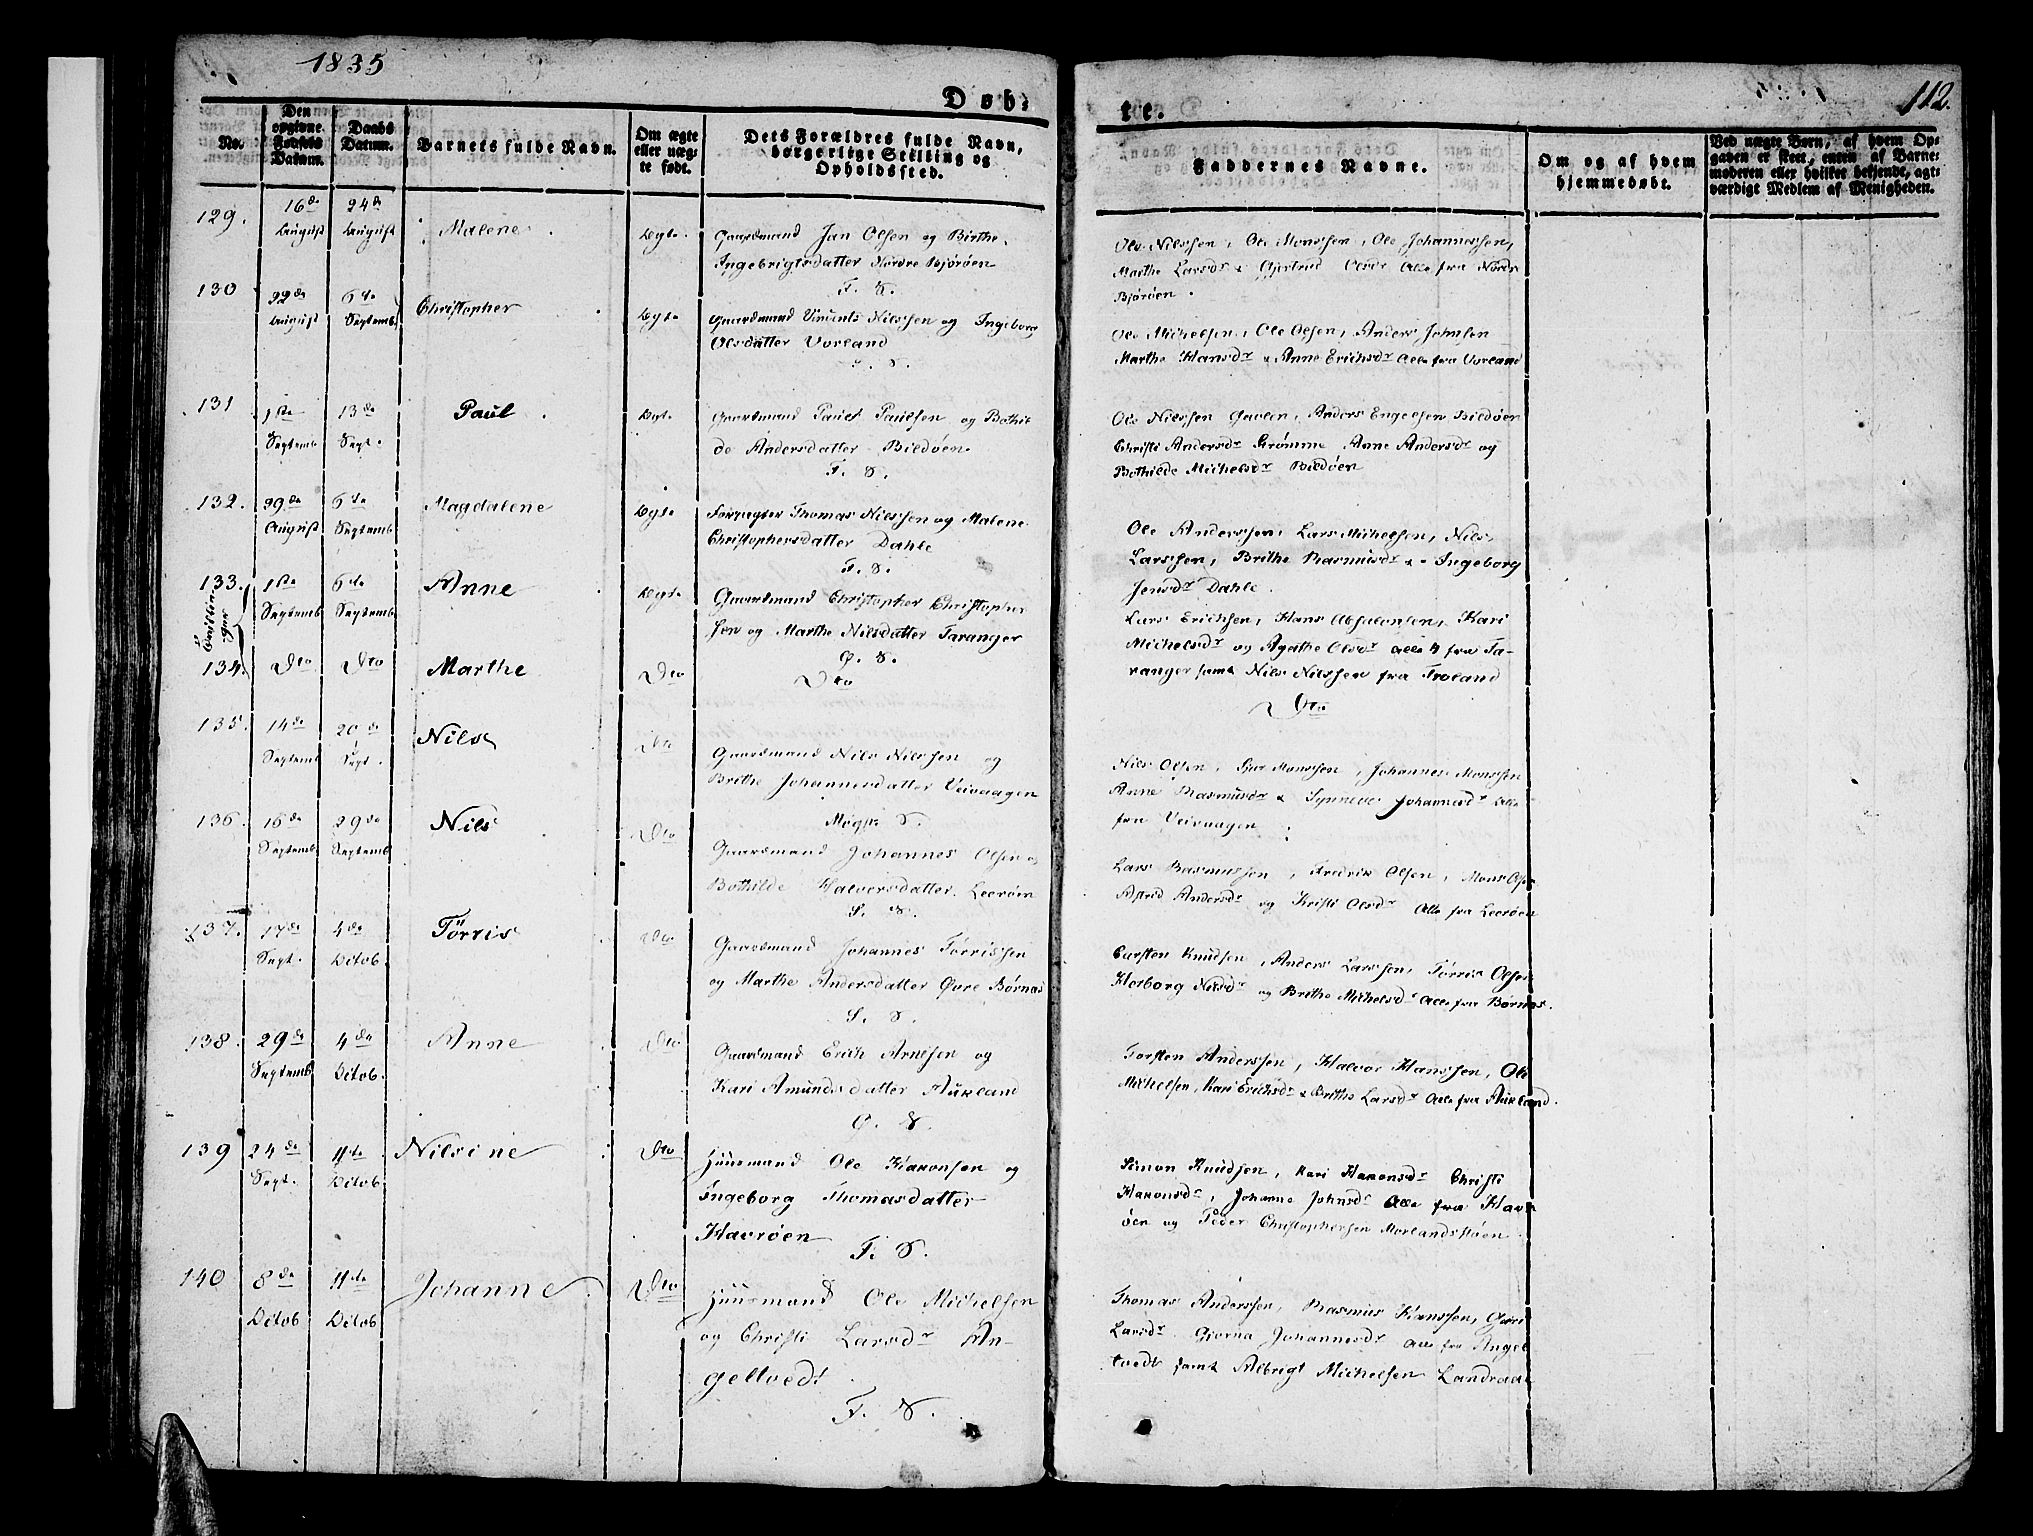 1835
112.
Døb-
te.
No.
Den opgivne Fødsels Datum.
Daabs Datum.
Barnets fulde Navn.
Om ægte eller uægte født.
Dets Forældres fulde Navn, borgerlige Stilling og Opholdssted.
Faddernes Navne.
Om og af hvem hjemmedøbt.
Ved uægte Børn, af hvem Opgaven er skeet, enten af Barnemoderen eller hvilket bekjendt, agtværdigt Medlem af Menigheden.
129. 16de August 24de August Malene Ægte
Gaardmand Jan Olsen og Birthe
Ingebrigtsdatter Nordre Bjorøen
F. S.
Ole Nilssen, Ole Monssen, Ole Johannessen,
Marthe Larsdr & Gjertrud Olsdr alle fra Nordr
Bjorøen.
130 22de August 6te Septemb Christopher Ægte
Gaardmand Vincents Nilssen og Ingeborg
Olsdatter Vorland
F. S.
Ole Michelsen, Ole Olsen, Anders Johnsen
Marthe Hansdr & Anne Erichsdr alle fra Vorland
131 1ste Septemb 13de Sept. Paul Ægte
Gaardmand Paul Paulsen og Bothil
de Andersdatter Bildøen
F. S.
Ole Nilssen Gavlen, Anders Engelsen Bildøen
Christi Andersdr Strømme Anne Andersdr og
Bothilde Michelsdr Bildøen
132. 29de August 6te Septemb Magdalene Ægte
Forpagter Thomas Nilssen og Malene
Christophersdatter Dahle
F. S.
Ole Anderssen, Lars Michelsen, Nils
Larssen, Brithe Rasmusdr & Ingeborg
Jensdr Dahle.
133. 1ste Septemb 6te Septemb Anne Ægte
Tvillinger
Gaardmand Christopher Christopher
sen og Marthe Nilsdatter Taranger
Ø. S.
Lars Erichsen, Hans Absalonsen, Kari
Michelsdr og Agathe Olsdr alle 4 fra Ta-
ranger samt Nils Nilssen fra Troland
134. Dto Dto Marthe Dto
Dto
Dto
135. 14de Septemb 20de Sept. Nils Dto
Gaardmand Nils Nilssen og
Brithe Johannesdatter Veivaagen
Møgst. S.
Nils Olsen, Monssen, Johannes Monssen
Anne Rasmusdr & Synneve Johannesdr alle
fra Veivaagen
136. 16de Septemb 29de Septemb Nils Dto
Gaardmand Johannes Olsen og
Bothilde Halversdatter Leerøen
S. S.
Lars Rasmussen, Fredrik Olsen, Mons Olsen
Astrid Andersdr og Kristi Olsdr alle fra Leerøen
137. 17de Sept. 4de Octob. Tørris Dto
Gaardmand Johannes Tørrissen
og Marthe Andersdatter Øvre Børnes
S. S.
Carsten Knudsen, Anders Larssen, Tørris Olsen
Herborg Nilsdr og Brithe Michelsdr alle fra Børnes.
138. 29de Septemb 4de Octob. Anne Dto
Gaardmand Erich Arnesen og
Kari Amundsdatter Aukland
Ø. S.
Torsten Anderssen, Halvor Hanssen, Ole
Michelsen, Kari Erichsdr & Brithe Larsdr alle fra Aukland.
139 24de Sept. 11te Octob. Nilsine Dto
Huusmand Ole Haaonsen og
Ingeborg Thomasdatter
Havrøen
F. S.
Simon Knudsen, Kari Haaonsdr Christi
Haaonsdr, Johanne Johnsdr alle fra Havr
øen og Peder Christophersen Morlandstøen
140 8de Octob 11te Octob Johanne Dto
Huusmand Ole Michelsen
og Christi Larsdr An-
geltvedt
F. S.
Thomas Anderssen, Rasmus Hanssen, Guri
Larsdr. Gjorna Johannesdr alle fra Angel
tvedt samt Albrigt Michelsen Landraae